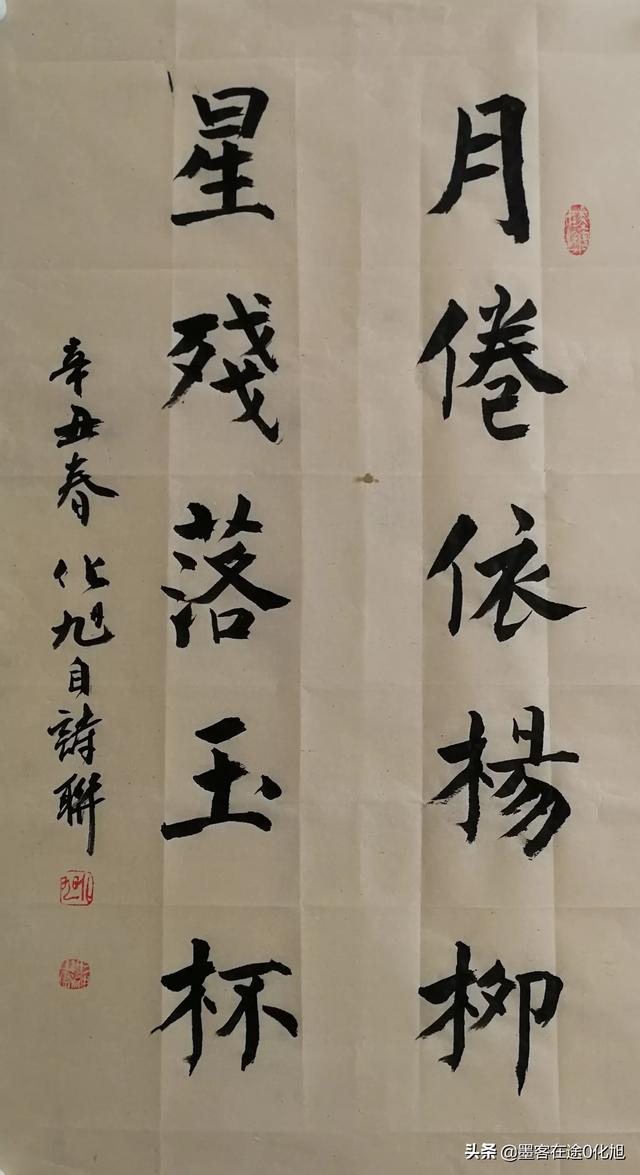 月倦依楊柳
星殘落玉杯
辛丑春化旭自詩聯
头条@墨客在途0化旭